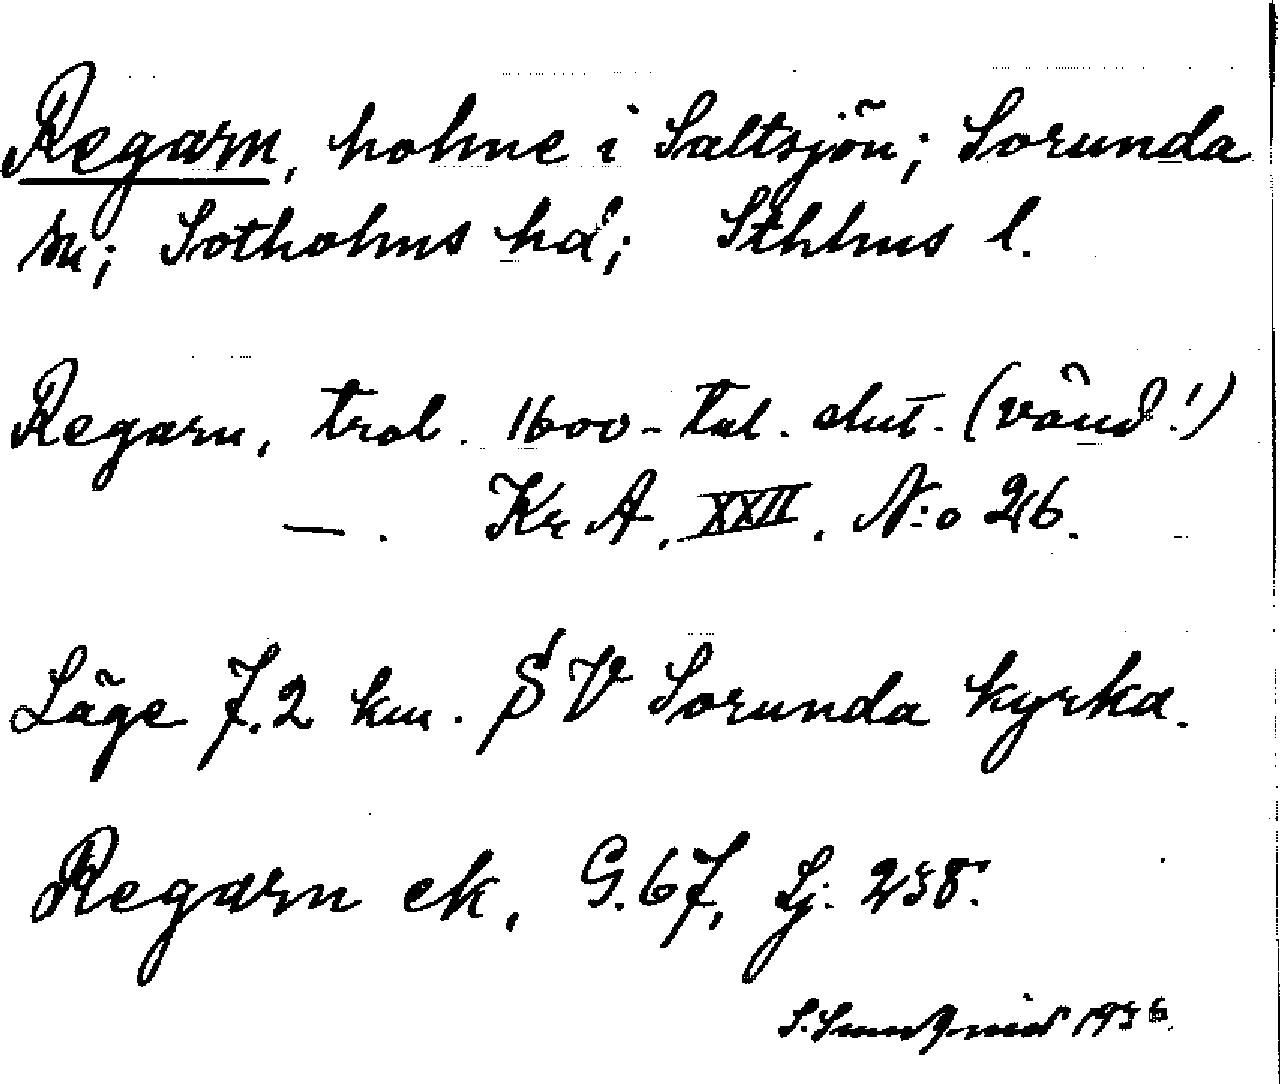 Regarn, holme i Saltsjön; Sorunda
sn; Sotholms hd; Sthlms l.
Regarn, trol. 1600-tal. slut. (vänd!)
—. Kr A. XXII. N:o 26.
Läge 7.2 km. SV Sorunda kyrka.
Regarn ek, G. 67, Lj. 258.
S. 1936.